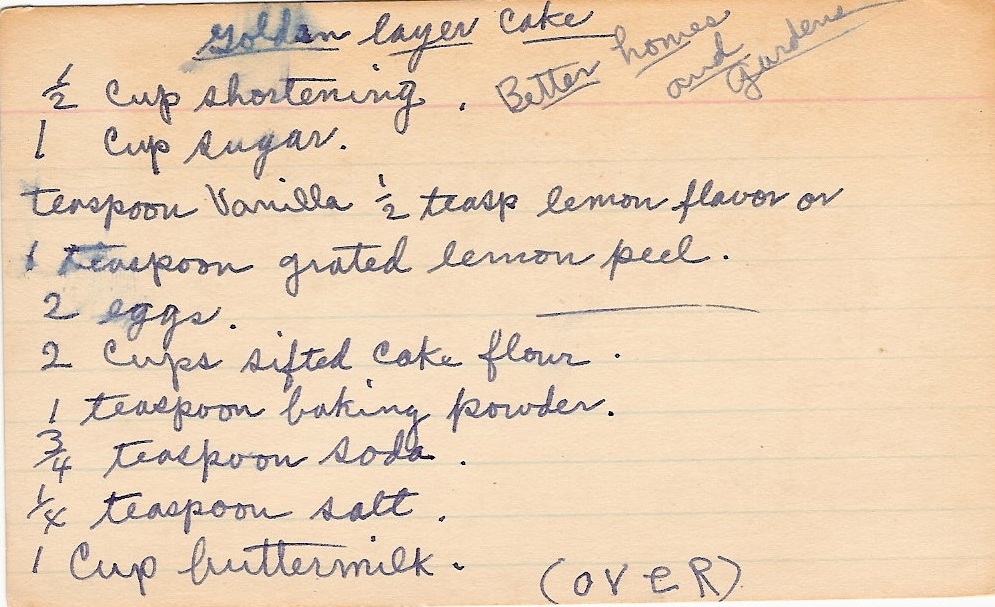 Golden layer Cake
Better homes
and
gardens
1/2 Cup shortening.
1 Cup sugar.
teaspoon Vanilla 1/2 teasp lemon flavor or
1 teaspoon grated lemon peel.
2 eggs.
2 Cups sifted Cake flour.
1 teaspoon baking powder.
3/4 teaspoon soda.
1/4 teaspoon salt.
1 Cup buttermilk.
(OVER)